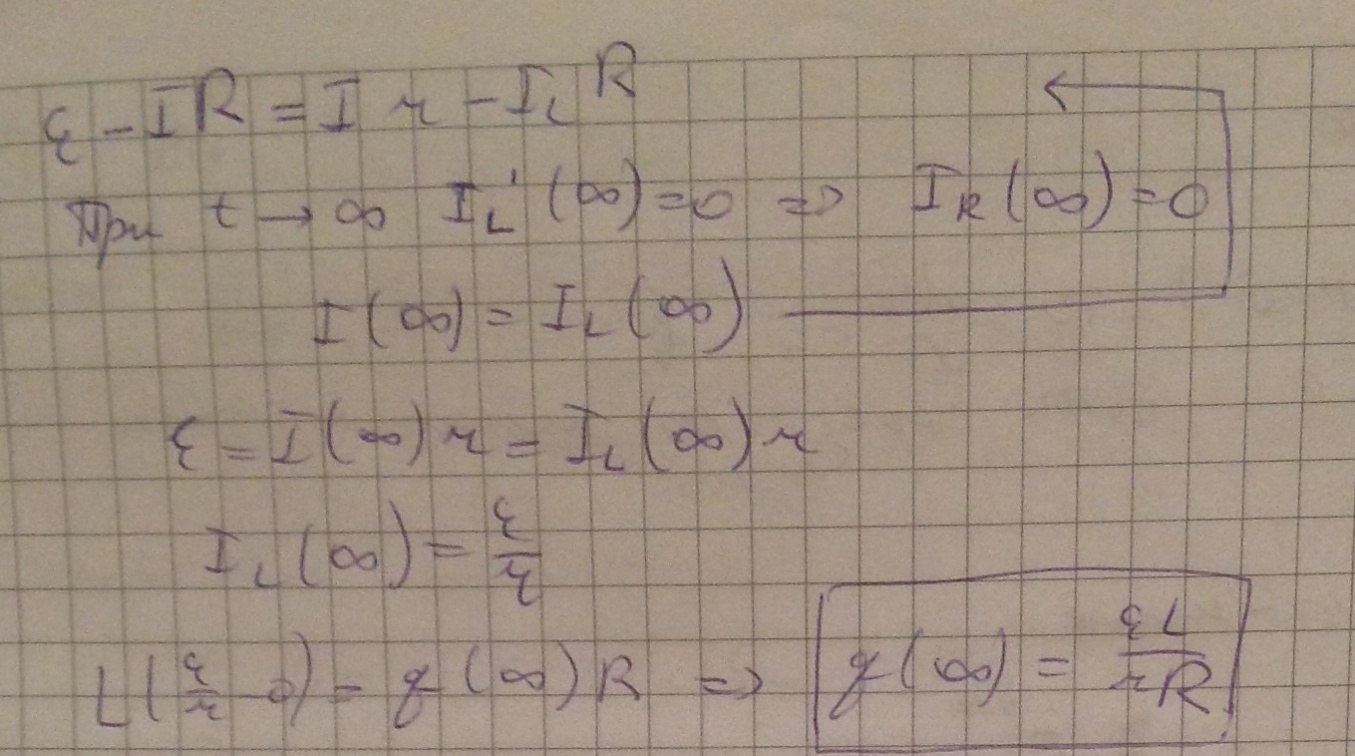 ε - IR = I r - I_L R
При t → ∞ I_L'(∞) = 0 => I_R(∞) = 0
I(∞) = I_L(∞)
ε = I(∞) r = I_L(∞) r
I_L(∞) = ε/r
L(ε/r - 0) = q(∞) R => q(∞) = εL/rR